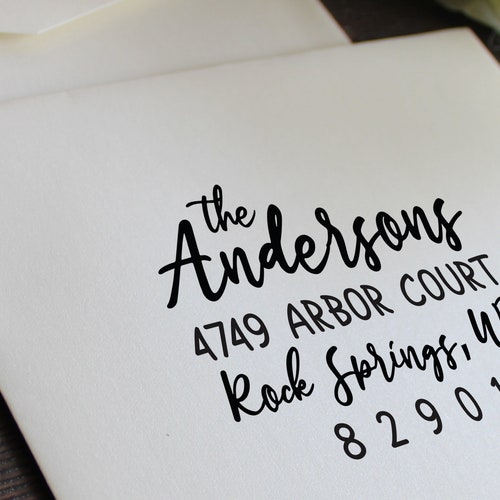 the
Andersons
4749 ARBOR COURT
Rock Springs,
82901